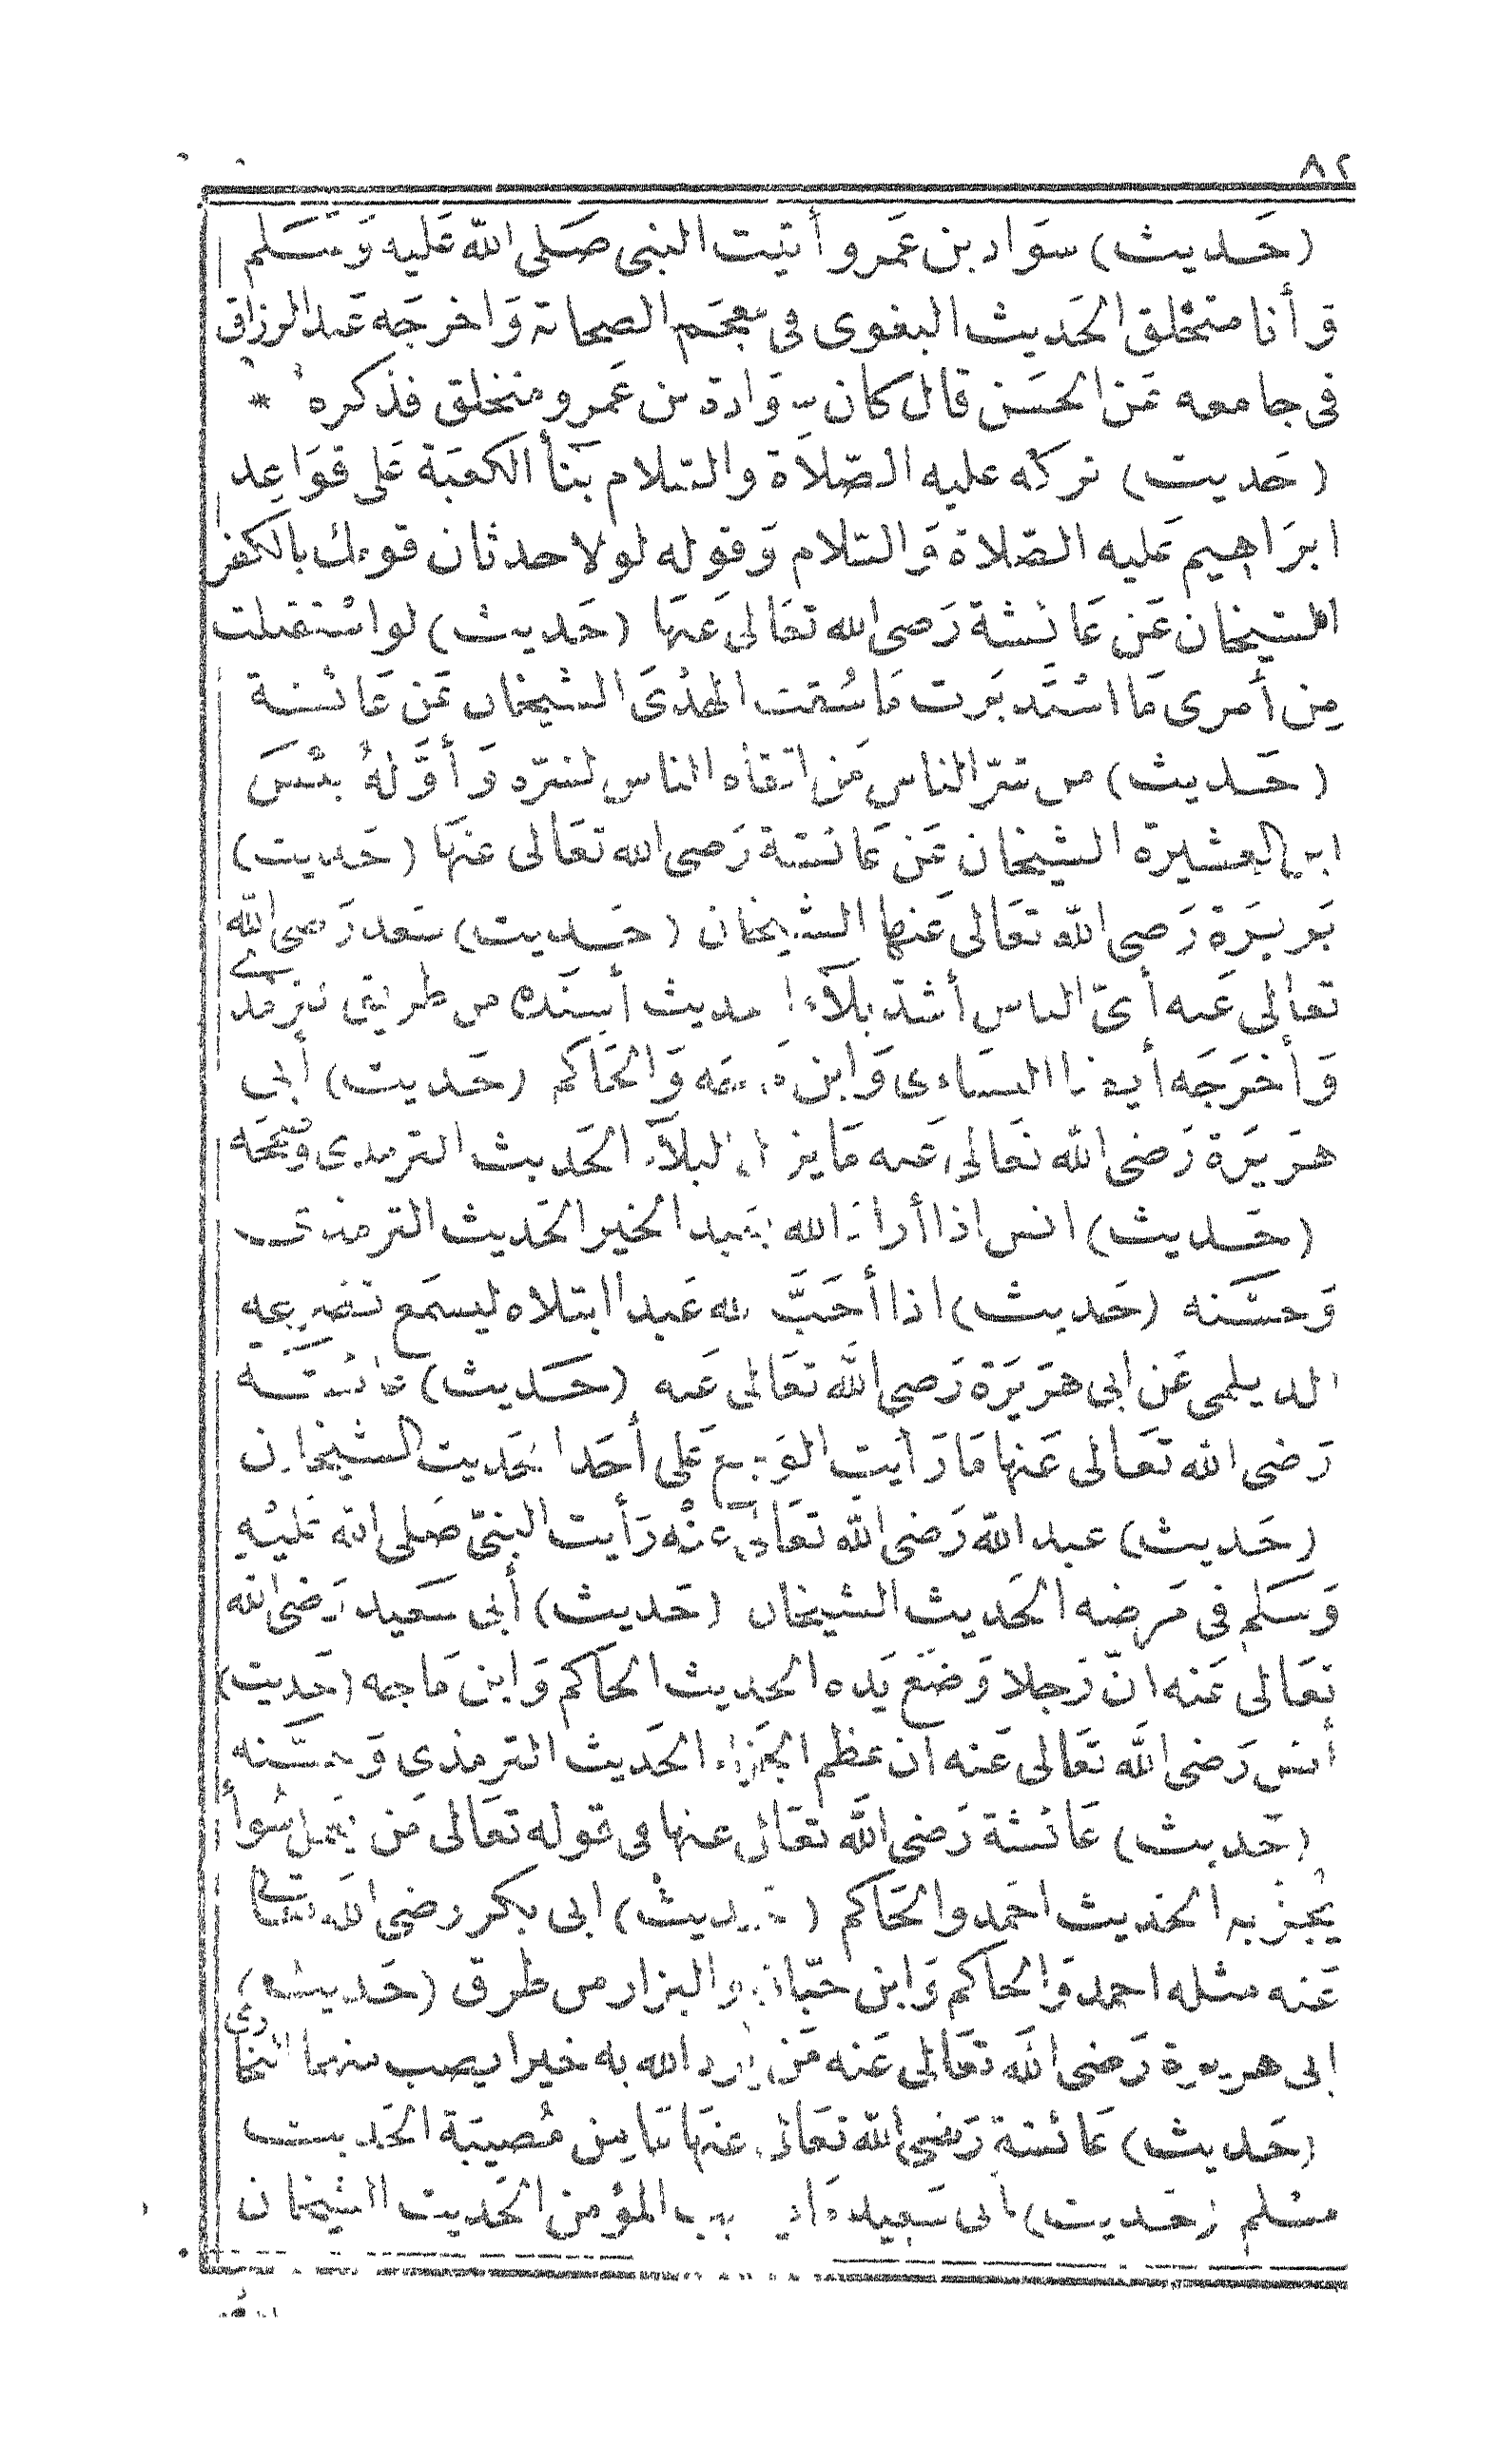 ٨٢
(حَديث) سوَاد بن عَمرو أتيت النبى صَلى الله عَليه وَسَلم
وَأنا متخلق الحَديث البغوى فى معجَم الصحابة وَاخرجَه عَبد الرزاق
فى جامعه عَن الحسَن قال كان سوَادة بن عَمرو متخلق فذكره *
(حَديث) تركه عليه الصّلاَة والسّلام بنَأ الكعبَة عَلى قوَاعِد
ابرَاهيم عَليه الصّلاة وَالسّلام وَقوله لولا حدثان قومك بالكفر
الشيخان عَن عَائشة رَضى الله تعَالى عَنهَا (حَديث) لو استقبلت
مِن أمرى مَا استَدبَرت مَا سُقت الهَدْىَ الشيخان عَن عَائشة
(حَديث) من شرّ الناس مَن اتقاه الناس لشرّه وَأوَّلهُ بئسَ
ابن العشيرة الشيخان عَن عَائشة رَضى الله تعَالى عنهَا (حَديث)
بَريرَة رَضى الله تعَالى عَنها الشيخان (حَديث) سَعد رَضى الله
تعالى عَنه أىّ الناس أشدّ بلآء الحديث أسنَده من طريق ترمذى
وَأخرَجَه أيضا النسَاءى وَابن مَاجَه وَالحَاكم (حَديث) أبى
هرَيرَة رَضى الله تعَالى عَنه مَا يزال البلآء الحَديث الترمذى وصححَه
(حَديث) انس اذا أراد الله بعَبد الخير الحَديث الترمذى
وَحسّنه (حَديث) اذا أحَبَّ الله عَبدا ابتلاه ليسمَع تضرعه
الديلمى عَن ابى هرَيرَة رَضى الله تعَالى عَنه (حَديث) عَائشَة
رَضى الله تعَالى عَنها مَا رَأيت الوَجع عَلى أحَد الحَديث الشيخان
(حَديث) عبد الله رَضى الله تعَالى عنْه رَأيت النبىّ صَلى الله عَليْه
وَسَلم فى مَرضه الحَديث الشيخان (حَديث) أبى سَعيد رَضى الله
تعَالى عَنه انّ رَجلا وَضعَ يَده الحديث الحَاكم وَابن مَاجه (حَديث)
أنس رَضى الله تعَالى عَنه ان عظم الجَزاء الحَديث الترمذى وَحسّنه
(حَديث) عَائشة رَضى الله تعَالى عنها فى قوله تعَالى مَن يَعمل سُوأ
يُجزَ به الحَديث احَمد والحَاكم (حَديث) ابى بكر رضى الله تعَالى
عَنه مثله احمد وَالحاكم وَابن حبّان والبزار من طرق (حَديث)
ابى هريرة رَضى الله تعَالى عَنه مَن يرد الله به خيرا يصب منه البخارى
(حَديث) عَائشة رَضى الله تعَالى عنهَا مَا مِن مُصيبَة الحَديث
مسْلم (حَديث) أبى سَعيد مَا المؤمن الحَديث الشيخان